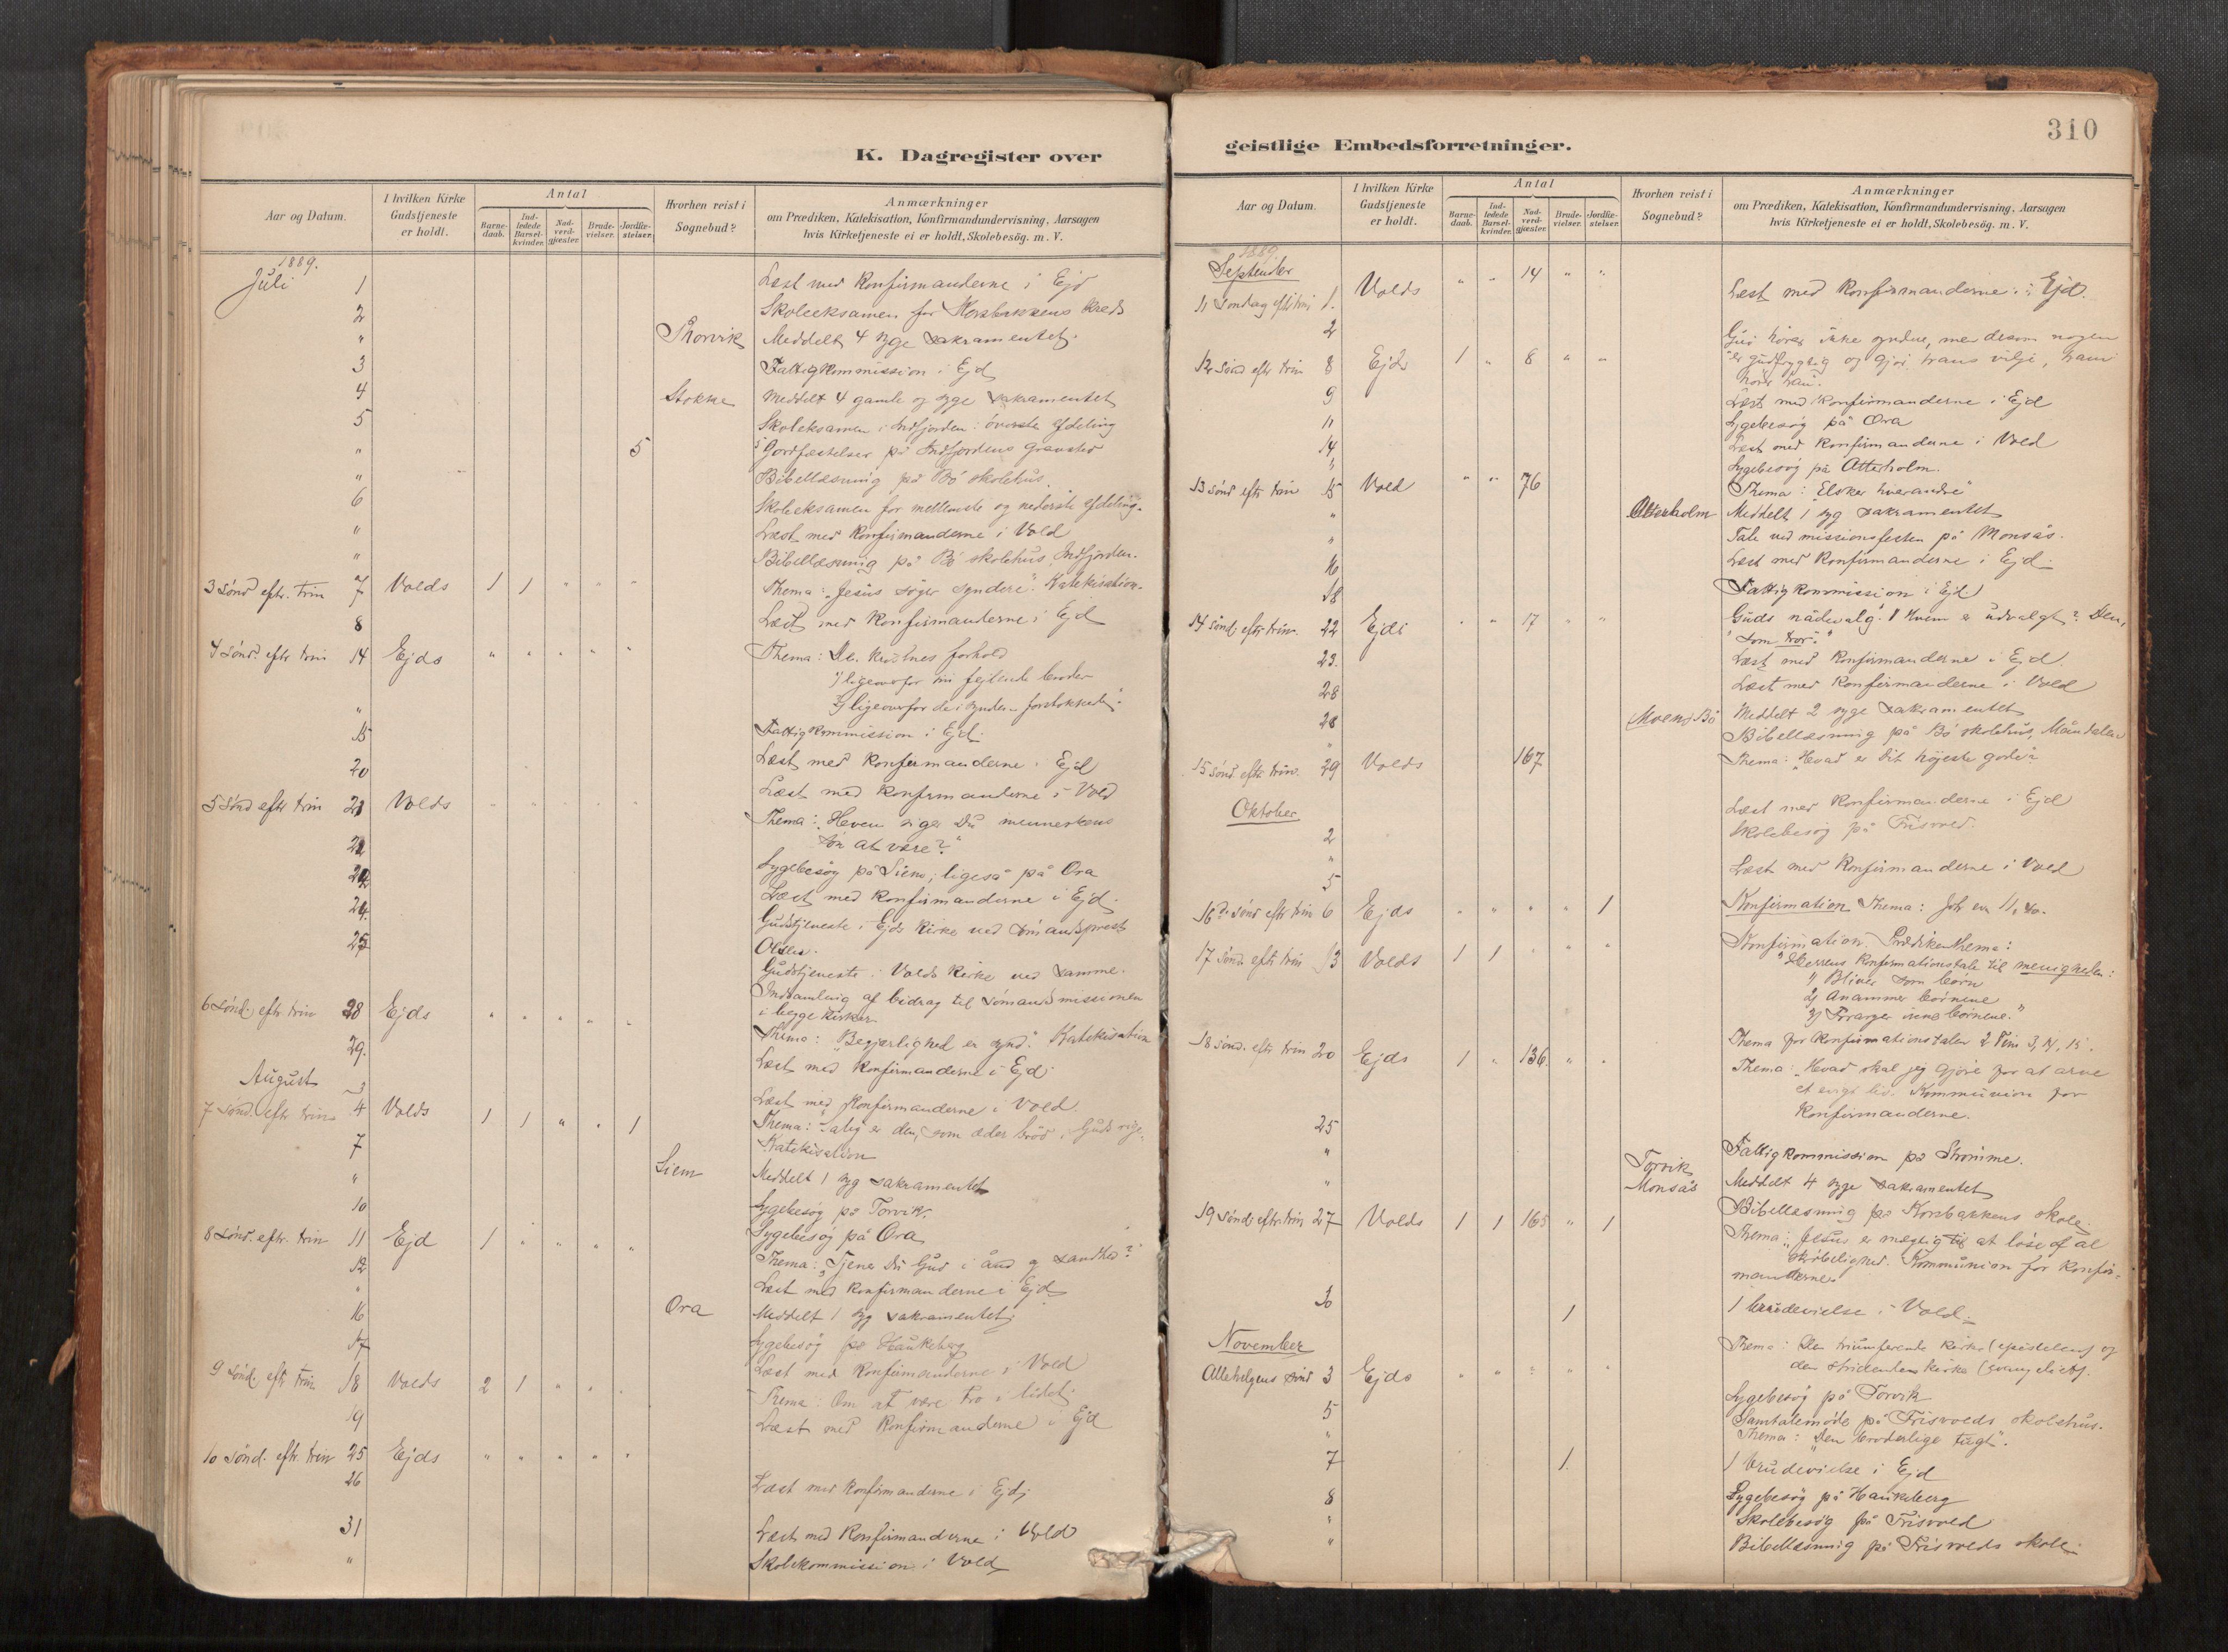 K. Dagregister over
Aar og Datum.
I hvilken Kirke Gudstjeneste er holdt.
Antal
Barne-daab.
Ind-ledede Barsel-kvinder.
Nad-verd-gjæster.
Brude-vielser.
Jordfæ-stelser.
Hvorhen reist i Sognebud?
Anmærkninger
om Prædiken, Katekisation, Konfirmandundervisning, Aarsagen
hvis Kirketjeneste ei er holdt, Skolebesög. m. V.
1889.
Juli 1 Læst med Konfirmanderne i Ejd
2 Skoleeksamen for Korsbakkens Kreds
" Thorvik Meddelt 4 syge sakramentet.
3 Fattigkommission i Ejd
4 Stokke Meddelt 4 gamle og syge sakramentet
5 Skoleeksamen i Indfjorden: øverste afdeling
" 5 5 Jordfæstelser på Indfjordens Gravsted
" Bibellæsning på Bö skolehus.
6 Skoleeksamen for mellemste og nederste afdeling.
" Læst med Konfirmanderne i Vold
" Bibellæsning på Bö skolehus, Indfjorden.
3 sönd eftr. trin 7 Volds 1 1 " " " Thema: "Jesus søger syndere". Katekisation.
8 Læst med Konfirmanderne i Ejd
4 sönd. eftr trin 14 Ejds " " " " " Thema: De kristnes forhold
1) ligeoverfor den fejlende broder
" 2) ligeoverfor de i synden forstokkede".
15 Fattigkommission i Ejd.
20 Læst med Konfirmanderne i Ejd
5 sönd eftr trin 21 Volds " " " " " Læst med Konfirmanderne i Vold
Thema: "Hvem siger Du menneskens
22 sön at være?"
24 Sygebesög på Siem, ligeså på Ora
24. Læst med Konfirmanderne i Ejd.
25 Gudstjeneste i Ejds Kirke ved sömandsprest
Olsen.
Gudstjeneste i Volds Kirke ved samme.
Indsamling af bidrag til sömandsmissionen
6 sönd. eftr trin 28 Ejds " " " " " i begge Kirker
29. Thema: "Begjærlighed er synd". Katekisation
Læst med Konfirmanderne i Ejd
August 3 Læst med Konfirmanderne i Vold
7 sönd. eftr trin 4 Volds 1 1 " " 1 Thema: Salig er den, som æder bröd i Guds rige.
7 Katekisation
" Siem Meddelt 1 syg sakramentet
10 Sygebesög på Torvik.
8 sönd. eftr. trin 11 Ejd 1 " " " " Sygebesög på Ora
12 Thema: "Tjener Du Gud i ånd og sandhed?"
" Læst med Konfirmanderne i Ejd
16 Ora Meddelt 1 syg sakramentet.
17 Sygebesög på Haukeberg
9 sönd. eftr trin 18 Volds 2 1 " " " Læst med Konfirmanderne i Vold
Thema: Om at være tro i lidet.
19 Læst med Konfirmanderne i Ejd
10 sönd. eftr. trin 25 Ejds " " " " "
26 Læst med Konfirmanderne i Ejd
31 Læst med Konfirmanderne i Vold
" Skolekommission i Vold
310
geistlige Embedsforretninger.
Aar og Datum.
I hvilken Kirke Gudstjeneste er holdt.
Antal
Barne-daab.
Ind-ledede Barsel-kvinder.
Nad-verd-gjæster.
Brude-vielser.
Jordfæ-stelser.
Hvorhen reist i Sognebud?
Anmærkninger
om Prædiken, Katekisation, Konfirmandundervisning, Aarsagen
hvis Kirketjeneste ei er holdt, Skolebesög. m. V.
1889.
September
11 söndag eftr trin 1. Volds " " 14 " "
2 Læst med Konfirmanderne i Ejd.
Gud hører ikke syndere, men dersom nogen
12 sönd eftr trin 8 Ejds 1 " 8 " " er gudfrygtig og gjør hans vilje, ham
hører han.
9 Læst med Konfirmanderne i Ejd
11 Sygebesög på Ora
14 Læst med Konfirmanderne i Vold
" Sygebesög på Atterholm.
13 sönd eftr trin 15 Vold " " 76 Thema: "Elsker hverandre"
" Atterholm Meddelt 1 syg sakramentet
" Tale ved missionsfesten på Monsås.
16 Læst med Konfirmanderne i Ejd.
18 Fattigkommission i Ejd
14 sönd. eftr trin. 22 Ejds " " 17 " " Guds nådevalg. Hvem er udvalgt? Den,
som tror."
23. Læst med Konfirmanderne i Ejd
28 Læst med Konfirmanderne i Vold
28 Moen, Bö Meddelt 2 syge sakramentet
" Bibellæsning på Bö skolehus, Måndalen
15 sönd. eftr trin. 29 Volds 167 Thema: "Hvad er dit højeste gode?"
Oktober
Læst med Konfirmanderne i Ejd
2 Skolebesög på Frisvold.
"
5 Læst med Konfirmanderne i Vold
16de sönd eftr trin 6 Ejds " " " " 1 Konfirmation Thema: Joh. ev. 11, 40.
17 sönd. eftr trin 13 Volds 1 1 " " " Konfirmation. Prædikenthema:
"Herrens Konfirmationstale til menigheden:
1) Bliver som børn
2) Anammer børnene
3) Forarger ei børnene."
Thema for Konfirmationstalen 2 Tim 3, 14, 15.
18 sönd. eftr trin 20 Ejds 1 " 136. " " Thema: "Hvad skal jeg gjøre for at arve
et evigt liv. Kommunion for
Konfirmanderne.
25
" Fattigkommission på Strømme.
" Torvik Monsås Meddelt 4 syge sakramentet
Bibellæsning på Korsbakkens skole.
19 sönd. eftr. trin 27 Volds 1 1 165 " 1 Thema: "Jesus er mægtig til at løse af al
skröbelighed. Kommunion for Konfir-
manderne
30 1 1 brudevielse i Vold.
November
Thema: Den triumferende kirke (epistelen) og
Allehelgens sönd 3 Ejds " " " " " den stridende kirke (evangeliet).
5 Sygebesög på Torvik
" Samtalemöde på Frisvolds skolehus.
Thema: "Den broderlige tugt".
7 1. 1 brudevielse i Ejd
8 Sygebesög på Haukeberg
" Skolebesög på Frisvold
" Bibellæsning på Frisvolds skole